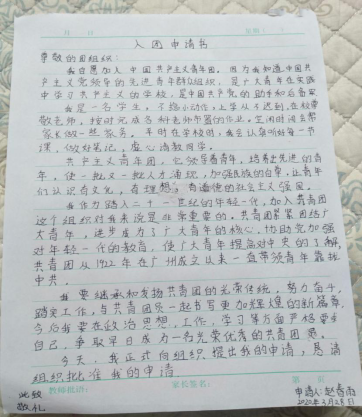 入团申请书
尊敬的团组织:
我自愿加入中国共产主义青年团。因为我知道中国共
产主义党领导的先进青年群众组织,是广大青年在实践
中学习共产主义的学校,是中国共产党的助手和后备军
我是一名学生,不搞小动作,上学从不迟到,在校尊
敬老师,按时完成各种老师布置的作业。空闲时间会帮
家长做一些家务。平时在学校时,我会认真听好每一节
课,做好笔记,虚心请教同学。
共产主义青年团,它领导着青年,培养出先进的青
年,使一批又一批人才涌现,加强民族的自尊,让青年
们认识有文化,有理想,有道德的社会主义强国。
我作为踏入二十一世纪的年轻一代,加入共青团
这个组织对我来说是非常重要的。共青团紧紧团结广
大青年,进步成为了广大青年的核心。协助党加强
对年轻一代的教育,使广大青年提高对中央的了解,
共青团从1922年在广州成立以来一直带领青年靠拢
中共。
我要继承和发扬共青团的光荣传统,努力奋斗,
踏实工作,与共青团员一起书写更加辉煌的新篇章,
今后我要在政治思想,工作,学习等方面严格要求
自己,争取早日成为一名光荣优秀的共青团员。
今天,我正式向组织提出我的申请,恳请
组织批准我的申请
教师批语: 家长签名: 第 页
此致
敬礼
申请人:赵春雨
2020年3月28日